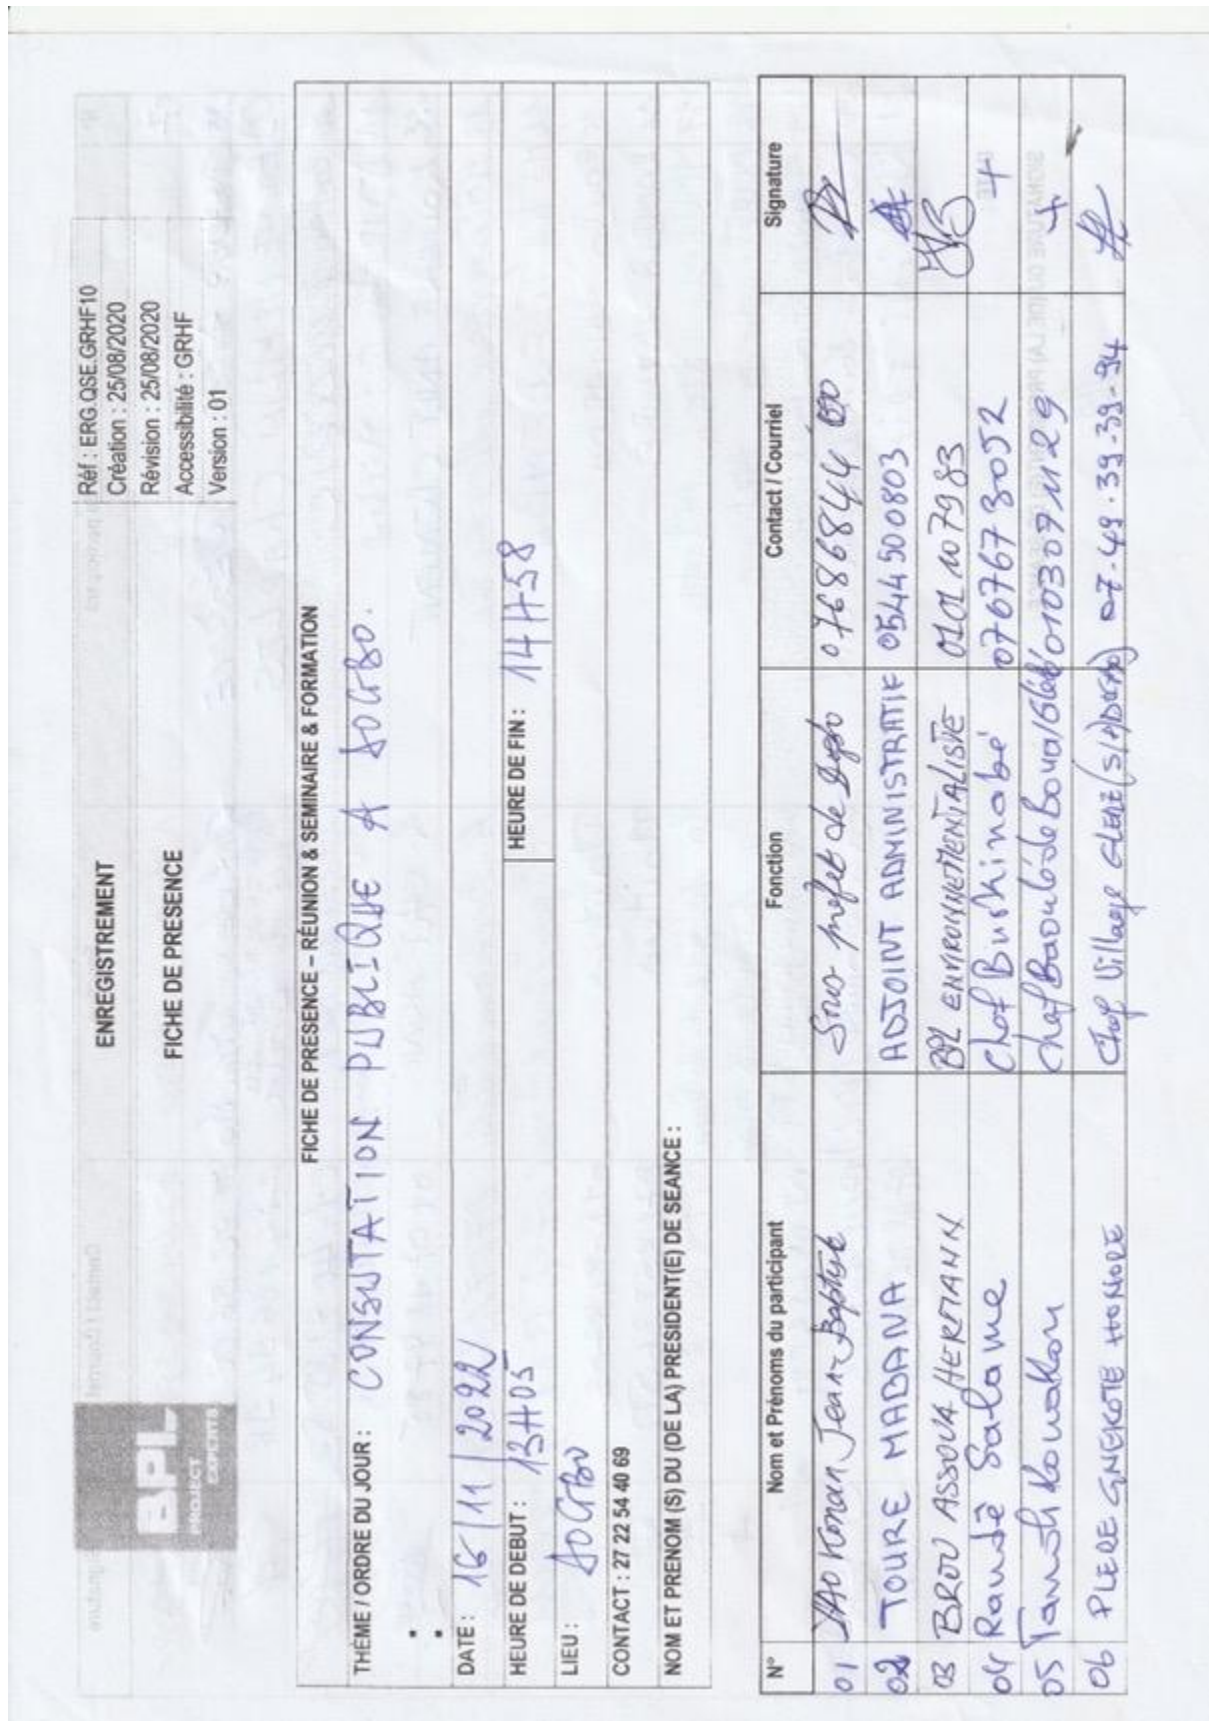 BPL
PROJECT
EXPERTS
ENREGISTREMENT
FICHE DE PRESENCE
Réf : ERG.QSE.GRHF10
Création : 25/08/2020
Révision : 25/08/2020
Accessibilité : GRHF
Version : 01
FICHE DE PRESENCE – RÉUNION & SEMINAIRE & FORMATION
THÈME / ORDRE DU JOUR : CONSUTATION PUBLIQUE A DOGBO.
DATE : 16/11/2022
HEURE DE DEBUT : 13H05 HEURE DE FIN : 14H58
LIEU : DOGBO
CONTACT : 27 22 54 40 69
NOM ET PRENOM (S) DU (DE LA) PRESIDENT(E) DE SEANCE :
N° Nom et Prénoms du participant Fonction Contact / Courriel Signature
01 YAO Konan Jean-Baptiste Sous prefet de 0768684460
02 TOURE MADANA ADJOINT ADMINISTRATIF 0544500803
03 BROU ASSOUA HERMANN BPL ENVIRONNEMENTALISTE 0101107983
04 Salame Chef Burkinabé 0767673052
05 Kouakou Chef Baoulé de 0103071129
06 PLEDE GNEKOTE HONORE Chef Village 07-49-39-39-94